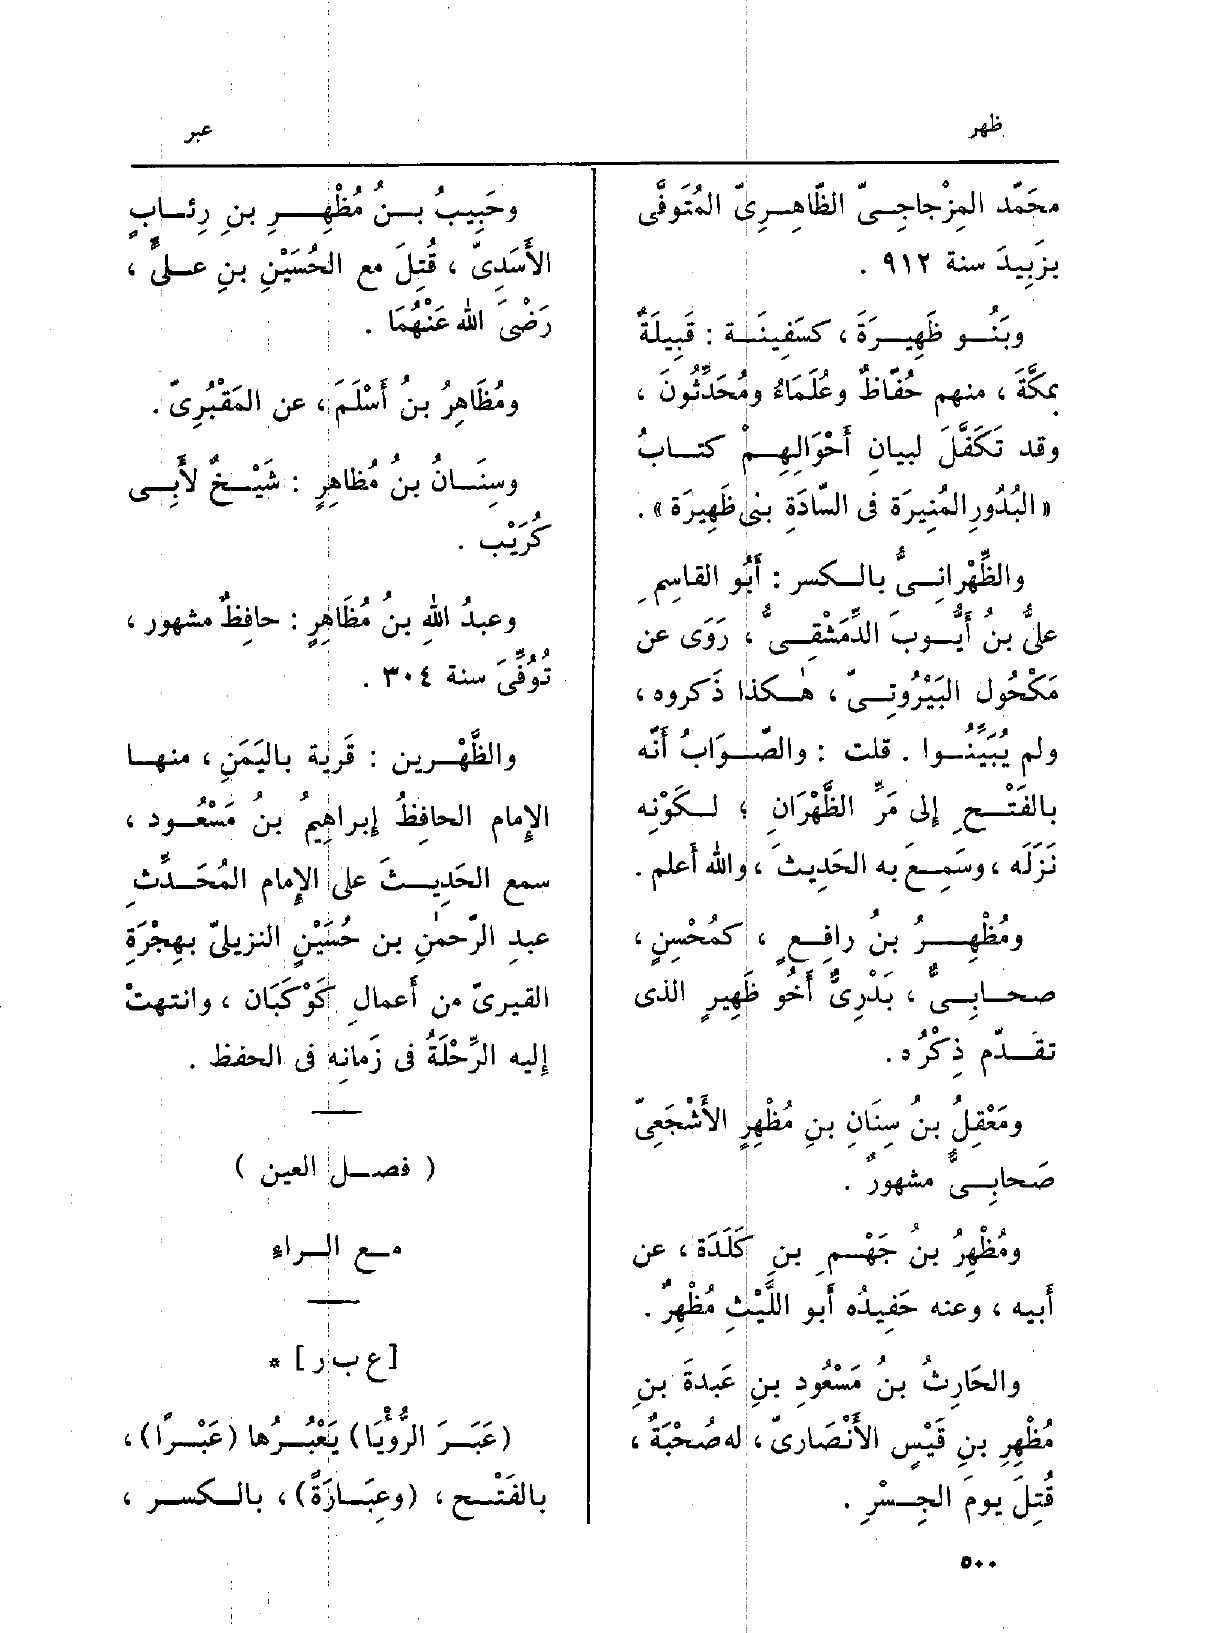 ظهر
عبر
محَمّد المِزْجاجىّ الظّاهِرِىّ المُتَوفَّى
بزَبِيدَ سنة ٩١٢ .
وبَنُو ظَهِيرَةَ ، كسَفِينَة : قَبِيلَةٌ
بمكَّةَ ، منهم حُفّاظٌ وعُلَمَاءُ ومُحَدِّثُونَ ،
وقد تَكَفَّلَ لبيانِ أَحْوَالِهِمْ كتابُ
« البُدُورِ المُنِيرَة فى السّادَةِ بنى ظَهِيرَة » .
والظِّهْرانِىُّ بالكسر : أَبُو القاسِمِ
علىُّ بنُ أَيُّوبَ الدِّمَشْقِىُّ ، رَوَى عن
مَكْحُول البَيْرُوتِىّ ، هٰكذا ذَكروه ،
ولم يُبَيِّنُوا . قلت : والصّوَابُ أَنّه
بالفَتْحِ إِلى مَرِّ الظَّهْرَانِ ؛ لكَوْنِه
نَزَلَه ، وسَمِعَ به الحَدِيثَ ، والله أَعلم .
ومُظْهِرُ بنُ رافِعٍ ، كمُحْسِنٍ ،
صحابِىٌّ ، بَدْرِىٌّ أَخُو ظَهِيرٍ الذى
تقدّم ذِكْرُه .
ومَعْقِلُ بنُ سِنَانِ بنِ مُظْهِرٍ الأَشْجَعِىّ
صَحابِىٌّ مشهورٌ .
ومُظْهِرُ بنُ جَهْمِ بنِ كَلَدَة ، عن
أَبيه ، وعنه حَفِيدُه أَبو اللَّيْثِ مُظْهِرٌ .
والحَارِثُ بنُ مَسْعُودِ بنِ عَبدةَ بنِ
مُظْهِرِ بنِ قَيْسٍ الأَنْصَارىّ ، له صُحْبَةٌ ،
قُتِلَ يومَ الجِسْرِ .
وحَبِيبُ بنُ مُظْهِرِ بنِ رِئابٍ
الأَسَدِىّ ، قُتِلَ مع الحُسَيْنِ بنِ علىٍّ ،
رَضْىَ الله عَنْهُمَا .
ومُظَاهِرُ بنُ أَسْلَمَ ، عن المَقْبُرِىّ .
وسِنَانُ بنُ مُظاهِرٍ : شَيْخٌ لأَبِى
كُرَيْب .
وعبدُ اللهِ بنُ مُظَاهِرٍ : حافِظٌ مشهور ،
تُوُفِّىَ سنة ٣٠٤ .
والظَّهْرِين : قَرية باليَمَنِ ، منها
الإِمام الحافِظُ إِبراهِيمُ بنُ مَسْعُود ،
سمع الحَدِيثَ على الإِمام المُحَدِّثِ
عبدِ الرّحمٰنِ بن حُسَيْنٍ النزيلىّ بهِجْرَةِ
القيرىّ من أَعمالِ كَوْكَبَان ، وانتهتْ
إِليه الرِّحْلَةُ فى زَمانِه فى الحفظ .
( فصل العين )
مع الراء
[ع ب ر] *
(عَبَرَ الرُّؤْيَا) يَعْبُرُها (عَبْرًا) ،
بالفَتْح ، (وعِبَارَةً) ، بالكسر ،
٥٠٠